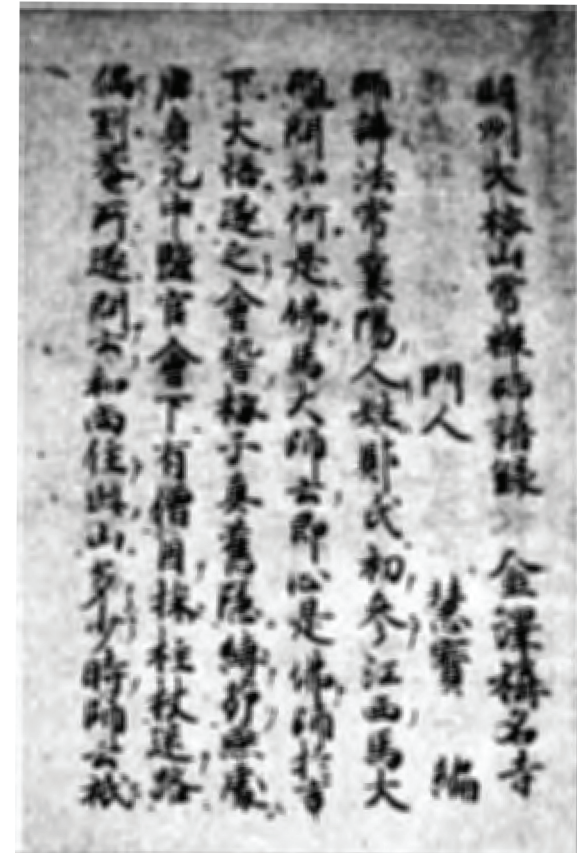 明州大梅山常禪師語録 金澤稱名寺
門人 慧寶 編
師諱法常襄陽人姓鄭氏初參江西馬大
問如何是佛馬大師云即心是佛師於言
下大悟遂之會稽梅子真舊隱縛茆燕處
唐貞元中鹽官會下有僧因採柱杖迷路
偶到菴所遂問云和尚住此山多少時師云祇